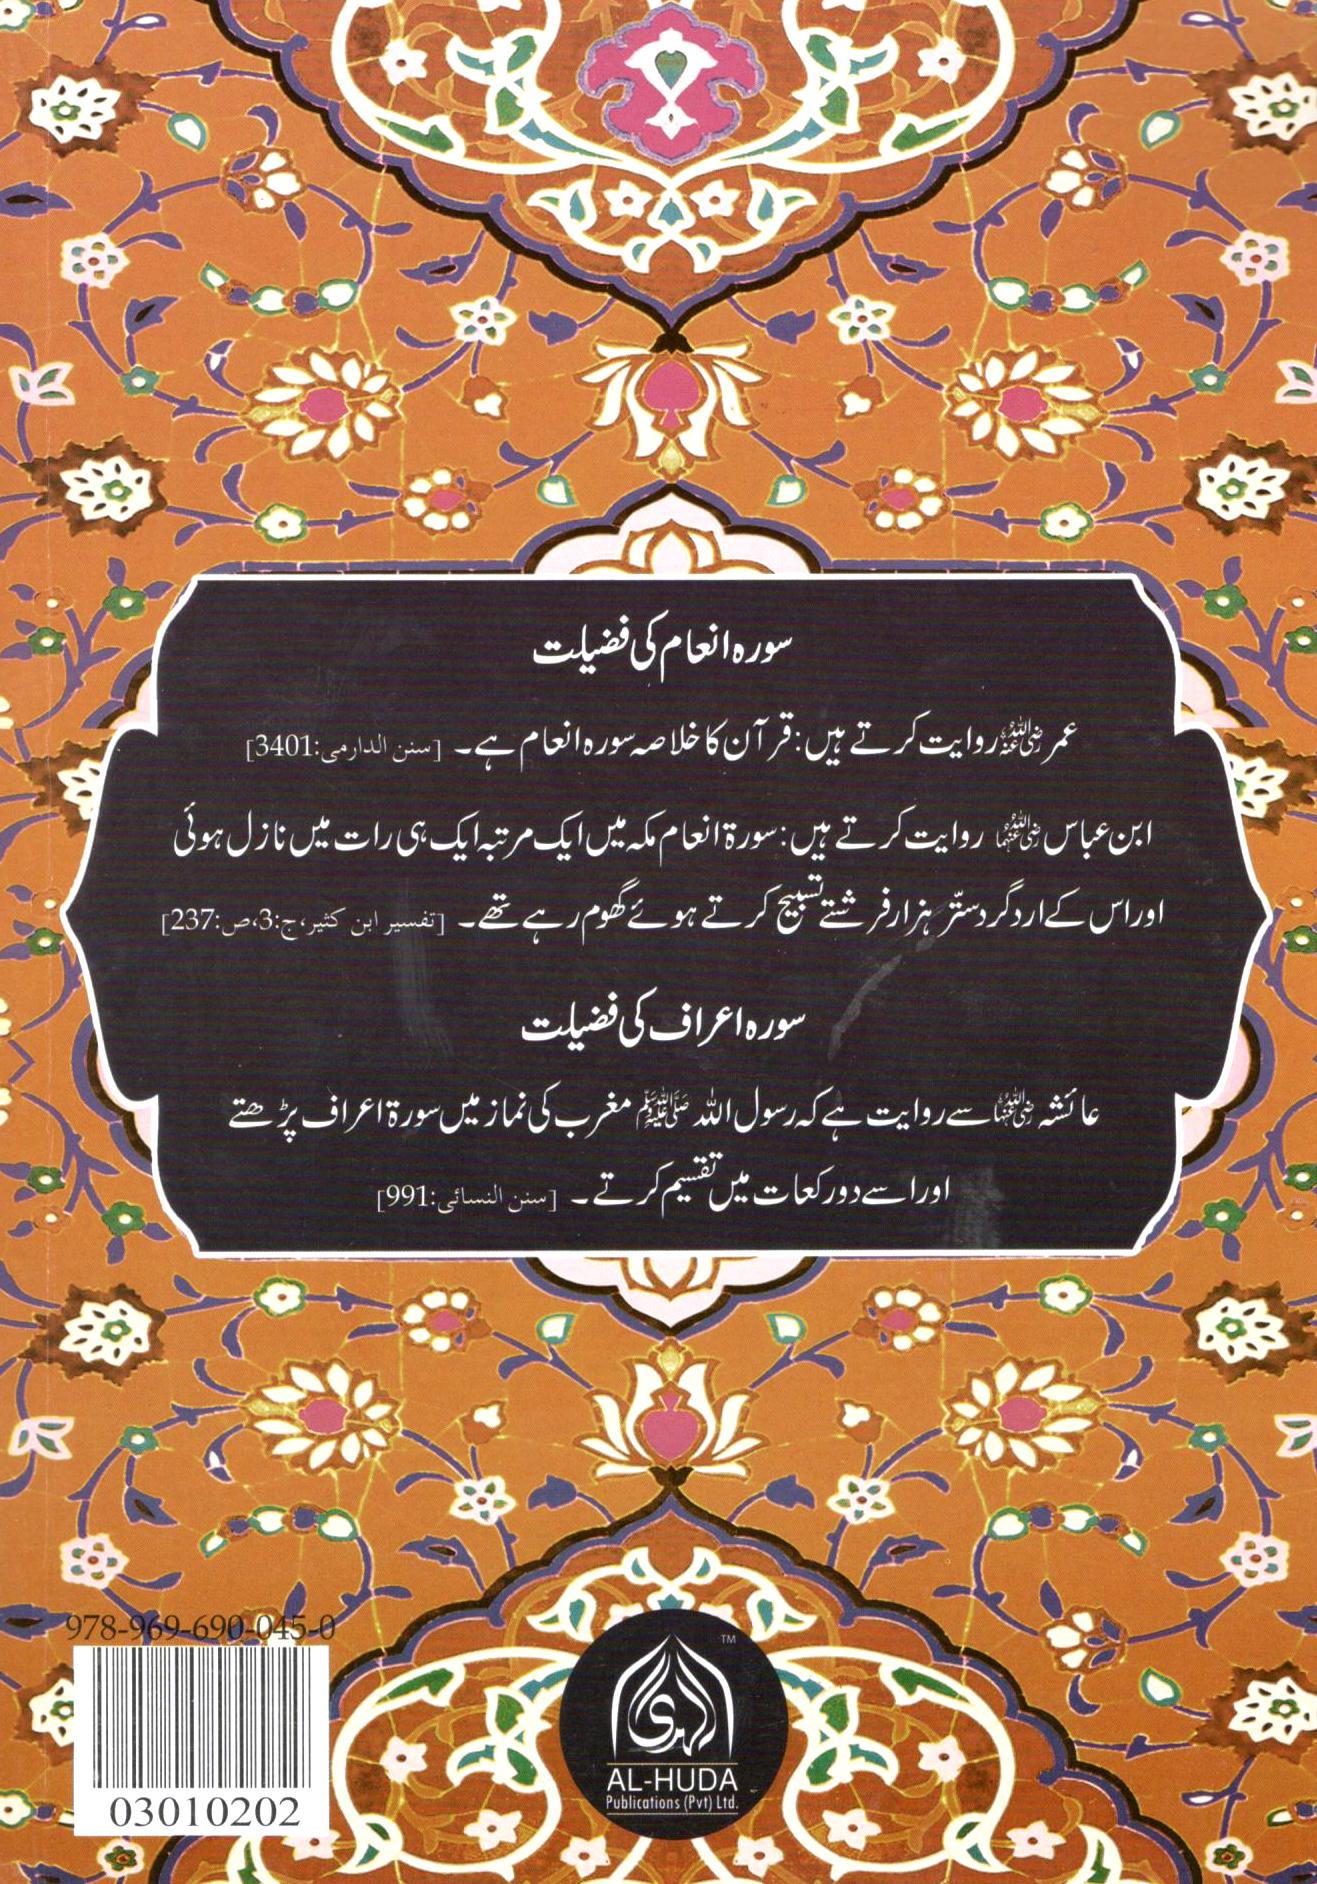 سورہ انعام کی فضیلت
عمر رضی اللہ عنہ روایت کرتے ہیں: قرآن کا خلاصہ سورہ انعام ہے۔ [سنن الدارمی:3401]
ابن عباس رضی اللہ عنہما روایت کرتے ہیں: سورۃ انعام مکہ میں ایک مرتبہ ایک ہی رات میں نازل ہوئی
اور اس کے ارد گرد ستّر ہزار فرشتے تسبیح کرتے ہوئے گھوم رہے تھے۔ [تفسیر ابن کثیر،ج:3،ص:237]
سورہ اعراف کی فضیلت
عائشہ رضی اللہ عنہا سے روایت ہے کہ رسول اللہ ﷺ مغرب کی نماز میں سورۃ اعراف پڑھتے
اور اسے دو رکعات میں تقسیم کرتے۔ [سنن النسائی:991]
978-969-690-045-0
03010202
الہدی
TM
AL-HUDA
Publications (Pvt) Ltd.